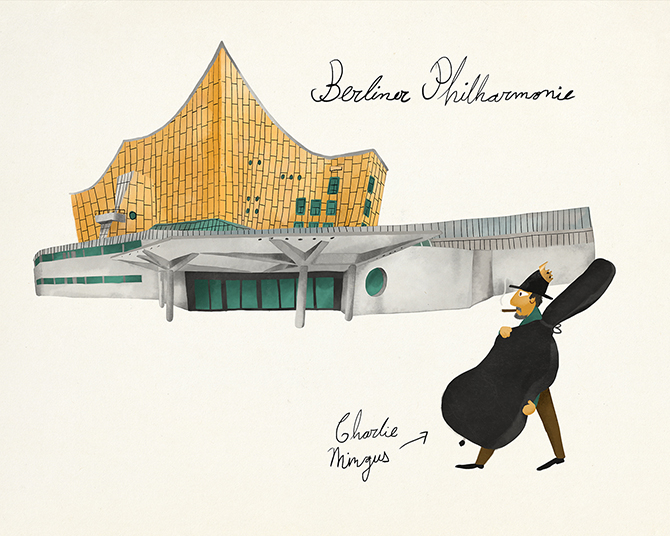 Berliner Philharmonie
Charlie
Mingus